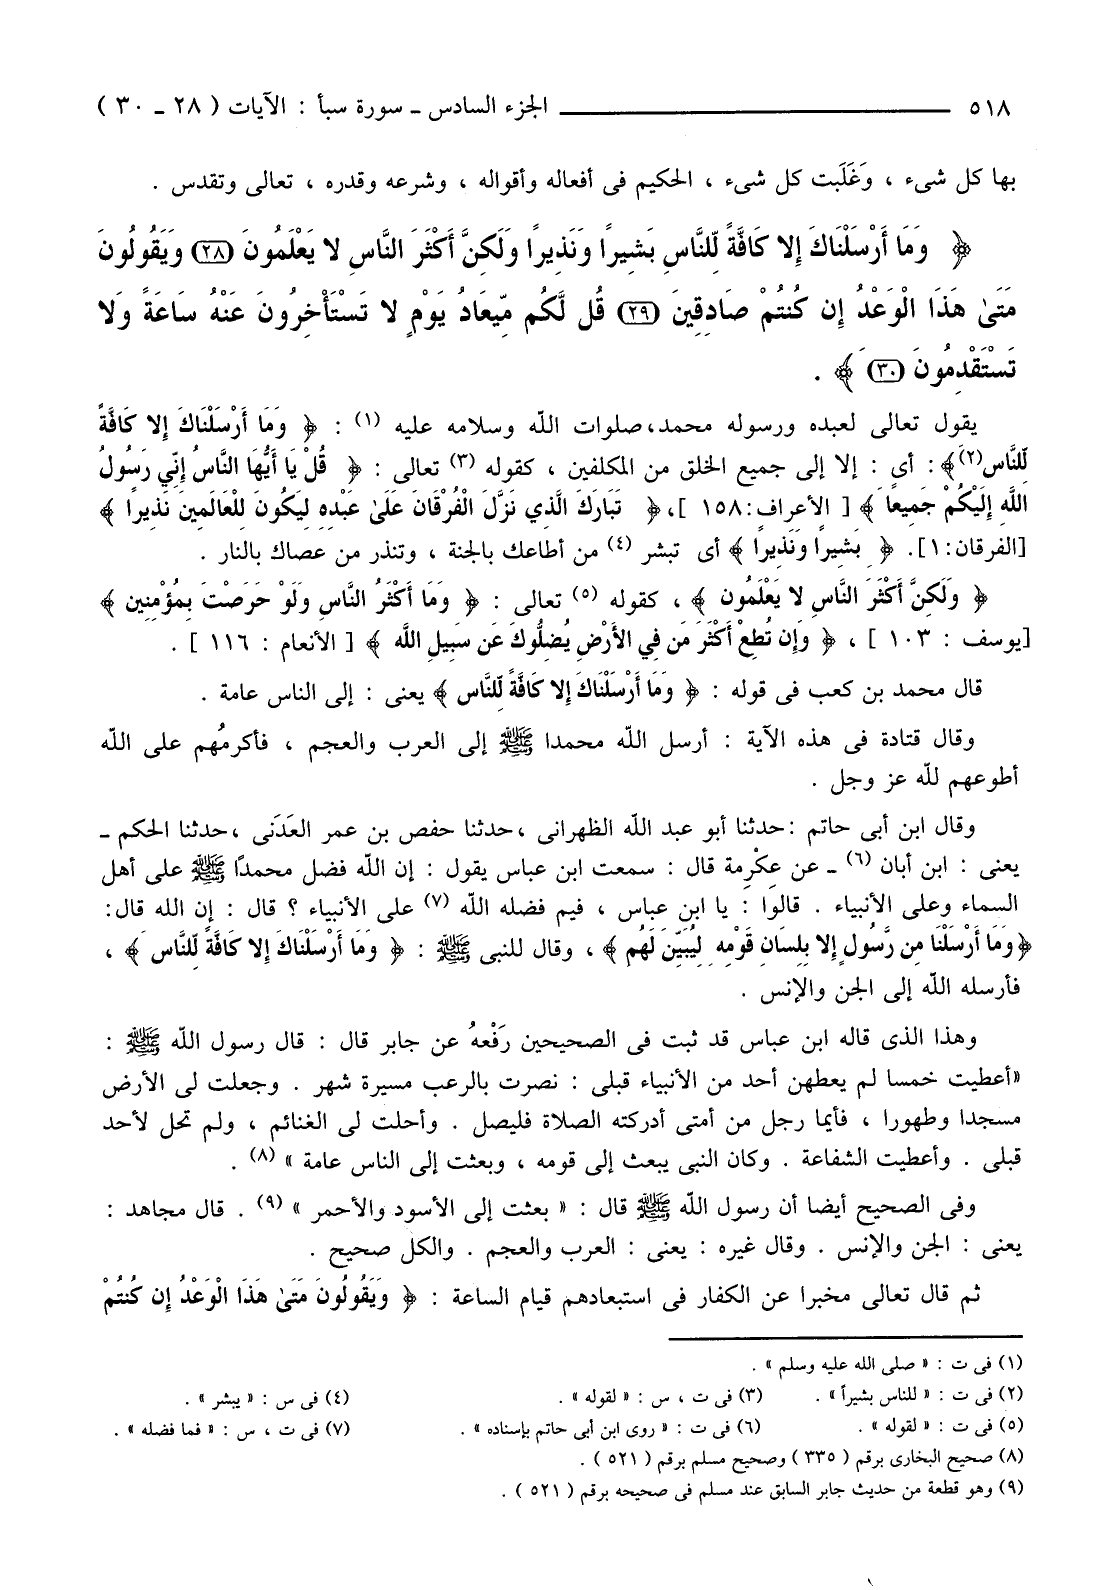 ٥١٨ ــــــــــــ الجزء السادس ـ سورة سبأ : الآيات ( ٢٨ ـ ٣٠ )
بها كل شىء ، وَغَلَبت كل شىء ، الحكيم فى أفعاله وأقواله ، وشرعه وقدره ، تعالى وتقدس .
﴿ وَمَا أَرْسَلْنَاكَ إِلا كَافَّةً لِّلنَّاسِ بَشِيراً وَنَذِيراً وَلَكِنَّ أَكْثَرَ النَّاسِ لا يَعْلَمُونَ (٢٨) وَيَقُولُونَ
مَتَىٰ هَذَا الْوَعْدُ إِن كُنتُمْ صَادِقِينَ (٢٩) قُل لَّكُم مِّيعَادُ يَوْمٍ لا تَسْتَأْخِرُونَ عَنْهُ سَاعَةً وَلا
تَسْتَقْدِمُونَ (٣٠) ﴾ .
يقول تعالى لعبده ورسوله محمد، صلوات الله وسلامه عليه (١) : ﴿ وَمَا أَرْسَلْنَاكَ إِلا كَافَّةً
لِّلنَّاسِ(٢)﴾ : أى : إلا إلى جميع الخلق من المكلفين ، كقوله (٣) تعالى : ﴿ قُلْ يَا أَيُّهَا النَّاسُ إِنِّي رَسُولُ
اللَّهِ إِلَيْكُمْ جَمِيعاً ﴾ [ الأعراف: ١٥٨ ]، ﴿ تَبَارَكَ الَّذِي نَزَّلَ الْفُرْقَانَ عَلَىٰ عَبْدِهِ لِيَكُونَ لِلْعَالَمِينَ نَذِيراً ﴾
[الفرقان: ١]. ﴿ بَشِيراً وَنَذِيراً ﴾ أى تبشر (٤) من أطاعك بالجنة ، وتنذر من عصاك بالنار .
﴿ وَلَكِنَّ أَكْثَرَ النَّاسِ لا يَعْلَمُون ﴾ ، كقوله (٥) تعالى : ﴿ وَمَا أَكْثَرُ النَّاسِ وَلَوْ حَرَصْتَ بِمُؤْمِنِين ﴾
[يوسف : ١٠٣ ] ، ﴿ وَإِن تُطِعْ أَكْثَرَ مَن فِي الأَرْضِ يُضِلُّوكَ عَن سَبِيلِ اللَّه ﴾ [ الأنعام : ١١٦ ] .
قال محمد بن كعب فى قوله : ﴿ وَمَا أَرْسَلْنَاكَ إِلا كَافَّةً لِّلنَّاس ﴾ يعنى : إلى الناس عامة .
وقال قتادة فى هذه الآية : أرسل الله محمدا ﷺ إلى العرب والعجم ، فأكرمُهم على الله
أطوعهم لله عز وجل .
وقال ابن أبى حاتم : حدثنا أبو عبد الله الظهرانى ، حدثنا حفص بن عمر العَدَنى ، حدثنا الحكم ـ
يعنى : ابن أبان (٦) ـ عن عكْرِمة قال : سمعت ابن عباس يقول : إن الله فضل محمدًا ﷺ على أهل
السماء وعلى الأنبياء . قالوا : يا ابن عباس ، فيم فضله الله (٧) على الأنبياء ؟ قال : إن الله قال:
﴿وَمَا أَرْسَلْنَا مِن رَّسُولٍ إِلا بِلِسَانِ قَوْمِهِ لِيُبَيِّنَ لَهُم ﴾ ، وقال للنبى ﷺ : ﴿ وَمَا أَرْسَلْنَاكَ إِلا كَافَّةً لِّلنَّاس ﴾ ،
فأرسله الله إلى الجن والإنس .
وهذا الذى قاله ابن عباس قد ثبت فى الصحيحين رَفْعهُ عن جابر قال : قال رسول الله ﷺ :
«أعطيت خمسا لم يعطهن أحد من الأنبياء قبلى : نصرت بالرعب مسيرة شهر . وجعلت لى الأرض
مسجدا وطهورا ، فأيما رجل من أمتى أدركته الصلاة فليصل . وأحلت لى الغنائم ، ولم تحل لأحد
قبلى . وأعطيت الشفاعة . وكان النبى يبعث إلى قومه ، وبعثت إلى الناس عامة » (٨) .
وفى الصحيح أيضا أن رسول الله ﷺ قال : « بعثت إلى الأسود والأحمر » (٩) . قال مجاهد :
يعنى : الجن والإنس . وقال غيره : يعنى : العرب والعجم . والكل صحيح .
ثم قال تعالى مخبرا عن الكفار فى استبعادهم قيام الساعة : ﴿ وَيَقُولُونَ مَتَىٰ هَذَا الْوَعْدُ إِن كُنتُمْ
(١) فى ت : « صلى الله عليه وسلم » .
(٢) فى ت : « للناس بشيراً » . (٣) فى ت ، س : « لقوله » . (٤) فى س : « يبشر » .
(٥) فى ت : « لقوله » . (٦) فى ت : « روى ابن أبى حاتم بإسناده » . (٧) فى ت ، س : « فما فضله » .
(٨) صحيح البخارى برقم ( ٣٣٥ ) وصحيح مسلم برقم ( ٥٢١ ) .
(٩) وهو قطعة من حديث جابر السابق عند مسلم فى صحيحه برقم ( ٥٢١ ) .